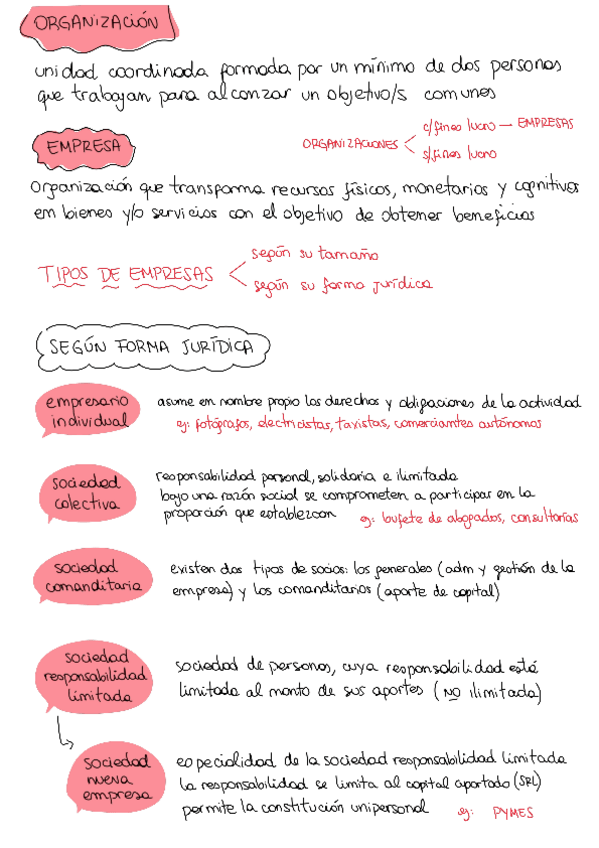 ORGANIZACIÓN
unidad coordinada formada por un mínimo de dos personas
que trabajan para alcanzar un objetivo/s comunes
EMPRESA
ORGANIZACIONES
c/fines lucro — EMPRESAS
s/fines lucro
organización que transforma recursos físicos, monetarios y cognitivos
en bienes y/o servicios con el objetivo de obtener beneficios
TIPOS DE EMPRESAS
según su tamaño
según su forma jurídica
SEGÚN FORMA JURÍDICA
empresario
individual
asume en nombre propio los derechos y obligaciones de la actividad
ej: fotógrafos, electricistas, taxistas, comerciantes autónomos
sociedad
colectiva
responsabilidad personal, solidaria e ilimitada
bajo una razón social se comprometen a participar en la
proporción que establezcan
ej: bufete de abogados, consultorías
sociedad
comanditaria
existen dos tipos de socios: los generales (adm y gestión de la
empresa) y los comanditarios (aporte de capital)
sociedad
responsabilidad
limitada
sociedad de personas, cuya responsabilidad está
limitada al monto de sus aportes (NO ilimitada)
sociedad
nueva
empresa
especialidad de la sociedad responsabilidad limitada
la responsabilidad se limita al capital aportado (SRL)
permite la constitución unipersonal
ej: PYMES